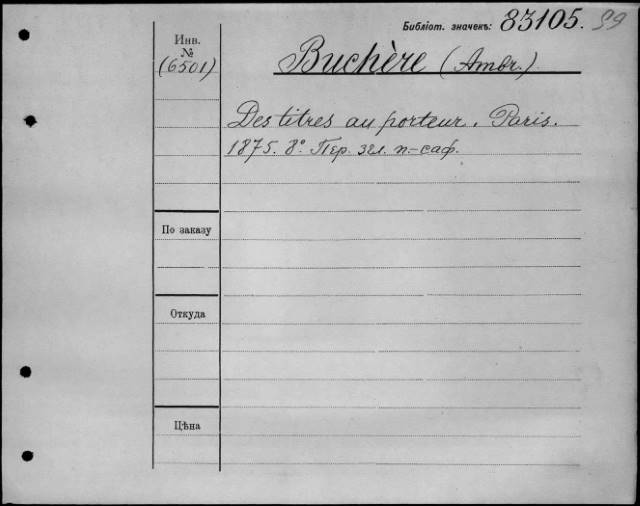 Библіот. значекъ: 83105. 59
Инв.
№
(6501)
Buchère (Ambr.)
Des titres au porteur. Paris.
1875. 8° Пер. зел. п.-саф.
По заказу
Откуда
Цѣна